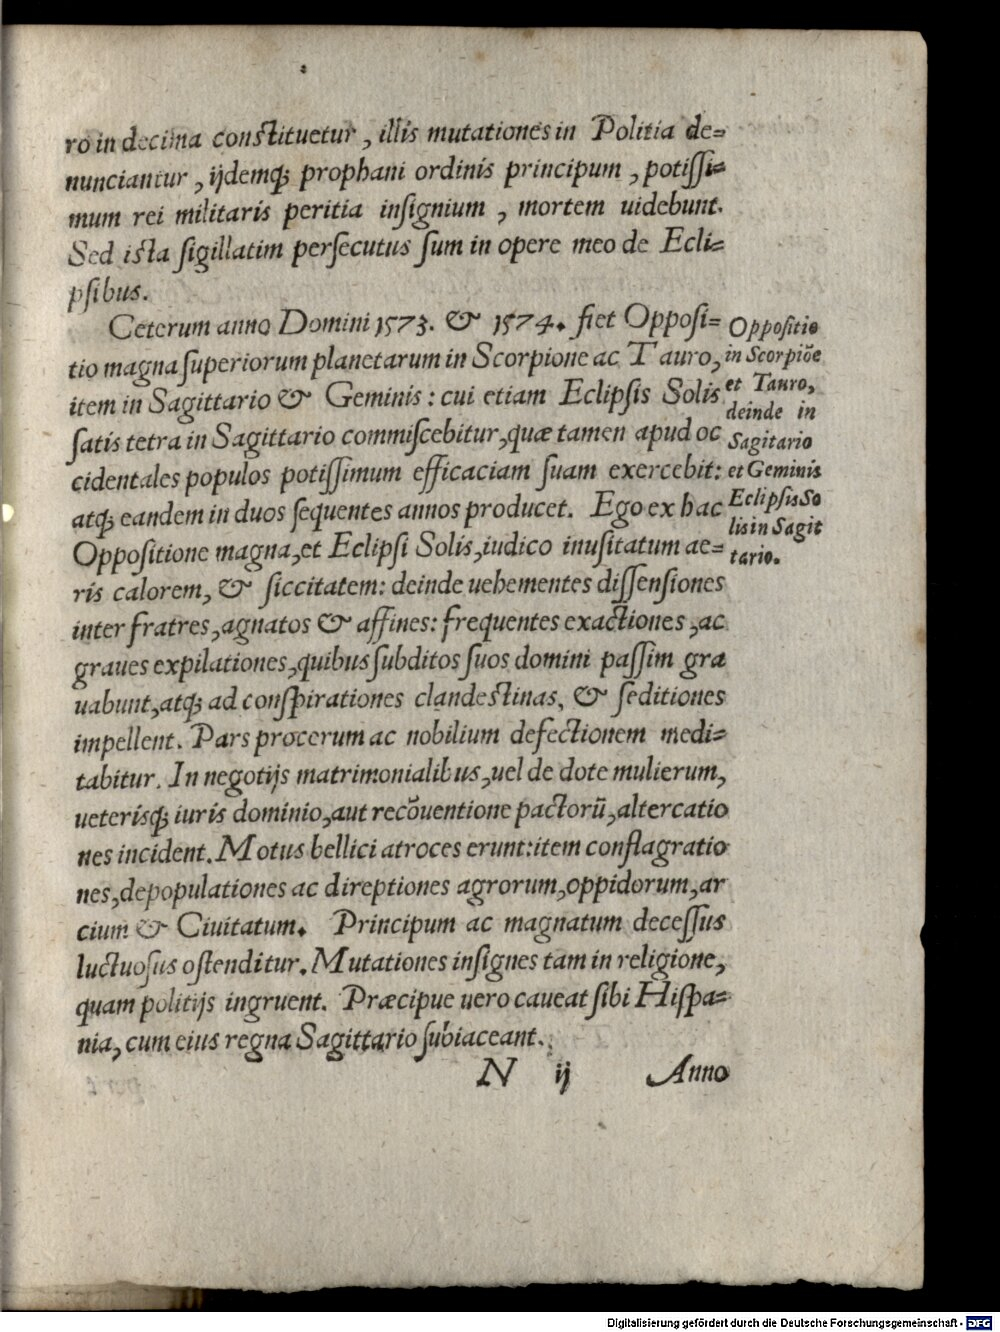 ro in decima constituetur, illis mutationes in Politia de=
nunciantur, ijdemq́; prophani ordinis principum, potiſſi=
mum rei militaris peritia inſignium, mortem uidebunt.
Sed iſta ſigillatim perſecutus ſum in opere meo de Ecli=
pſibus.
Ceterum anno Domini 1573. & 1574. fiet Oppoſi=
tio magna ſuperiorum planetarum in Scorpione ac Tauro,
item in Sagittario & Geminis: cui etiam Eclipſis Solis
ſatis tetra in Sagittario commiſcebitur, quæ tamen apud oc
cidentales populos potiſſimum efficaciam ſuam exercebit:
atq́; eandem in duos ſequentes annos producet. Ego ex hac
Oppoſitione magna, et Eclipſi Solis, iudico inuſitatum ae=
ris calorem, & ſiccitatem: deinde uehementes diſſenſiones
inter fratres, agnatos & affines: frequentes exactiones, ac
graues expilationes, quibus ſubditos ſuos domini paſſim gra
uabunt, atq́; ad conſpirationes clandeſtinas, & ſeditiones
impellent. Pars procerum ac nobilium defectionem medi=
tabitur. In negotijs matrimonialibus, uel de dote mulierum,
ueterisq́; iuris dominio, aut recōuentione pactorū, altercatio
nes incident. Motus bellici atroces erunt: item conflagratio
nes, depopulationes ac direptiones agrorum, oppidorum, ar
cium & Ciuitatum. Principum ac magnatum deceſſus
luctuoſus oſtenditur. Mutationes inſignes tam in religione,
quam politijs ingruent. Præcipue uero caueat ſibi Hiſpa=
nia, cum eius regna Sagittario ſubiaceant.
N ij Anno
Oppoſitio
in Scorpiōe
et Tauro,
deinde in
Sagitario
et Geminis
Eclipſis So
lis in Sagit
tario.
Digitalisierung gefördert durch die Deutsche Forschungsgemeinschaft - DFG